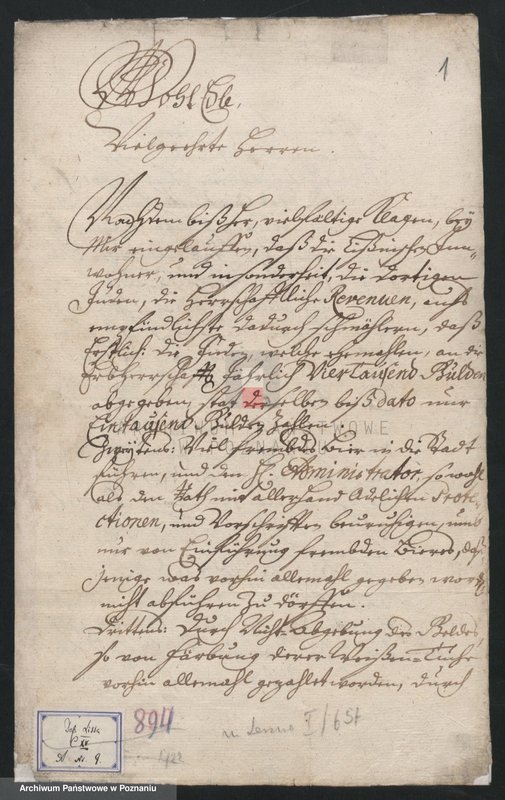 1
WohlEdle,
Vielgeehrte Herren.
Nachdem bißher, vielfältige Klagen, bey
Mir eingelauffen, daß die Lißnischen Inn-
wohner, und insonderheit, die dortigen
Juden, die Herrschafftliche Revenuen, aufs
empfindlichste dadurch schmählern, daß
Erstlich: die Juden, welche ehemahlen, an die
Erbherrschafft Jährlich Viertausend Gülden
abgegeben, statt derselben biß dato nur
Eintausend Gülden zahlen.
Zweytens: Viel frembdes Bier in die Stadt
führen, und den H. Administrator, sowohl
als den Rath mit allerhand Adelichen Prote-
ctionen, und Vorschrifften beunruhigen, umb
nur von Einführung frembden Bieres, das
jenige was vorhin allemahl gegeben word
nicht abführen zu dörffen.
Drittens: Durch Nicht-Abgebung des Geldes,
so von Färbung derer Weißen-Tuche
vorhin allemahl gezahlet worden, durch
894
Dep. Lissa
C XV
No. 9.
Archiwum Państwowe w Poznaniu